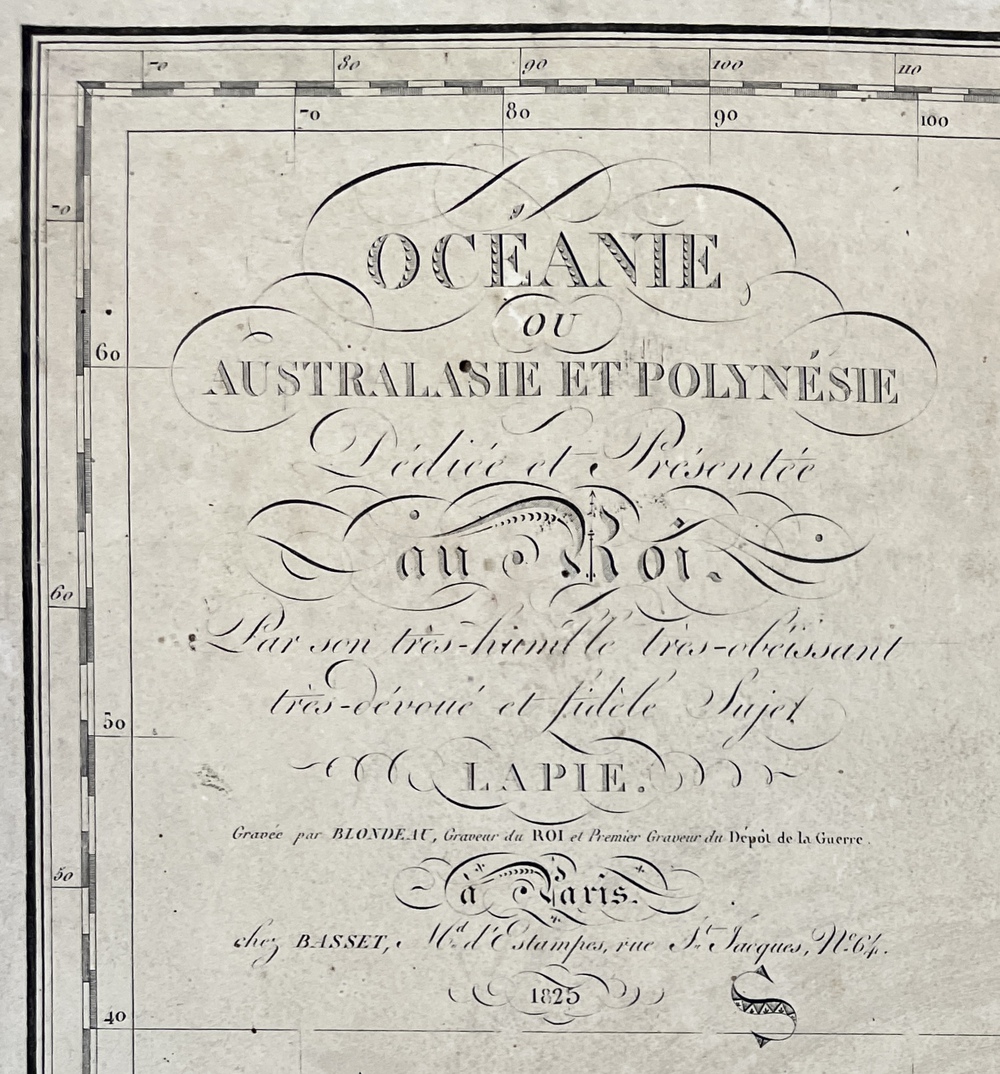 70 80 90 100 110
70 80 90 100
70
OCÉANIE
OU
60
AUSTRALASIE ET POLYNÉSIE
Dédiée et Présentée
au Roi.
60
Par son très-humble très-obéissant
très-dévoué et fidèle Sujet
50
LAPIE.
Gravée par BLONDEAU, Graveur du ROI et Premier Graveur du Dépôt de la Guerre.
50
à Paris.
chez BASSET, Md. d'Estampes, rue St. Jacques, No. 64.
1825
S
40